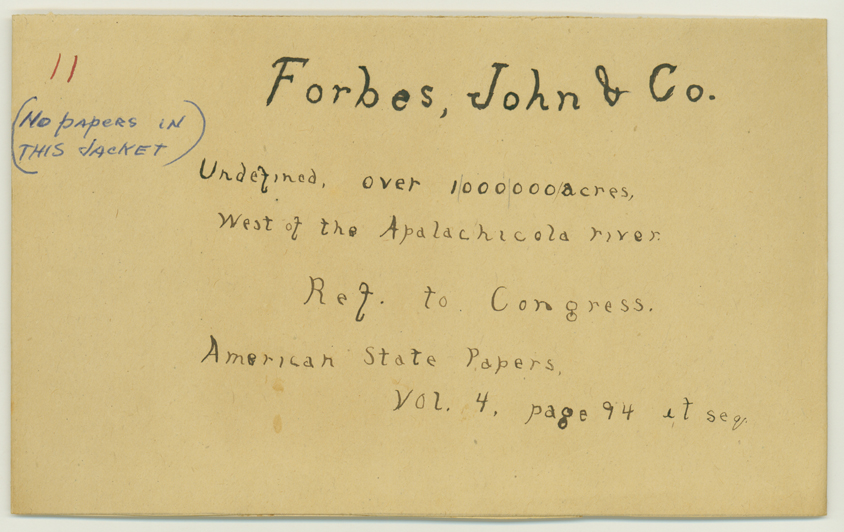 11
Forbes, John & Co.
(No papers in
this jacket)
Undefined, over 1000000 acres,
West of the Apalachicola river.
Ref. to Congress.
American State Papers,
Vol. 4, page 94 et seq.